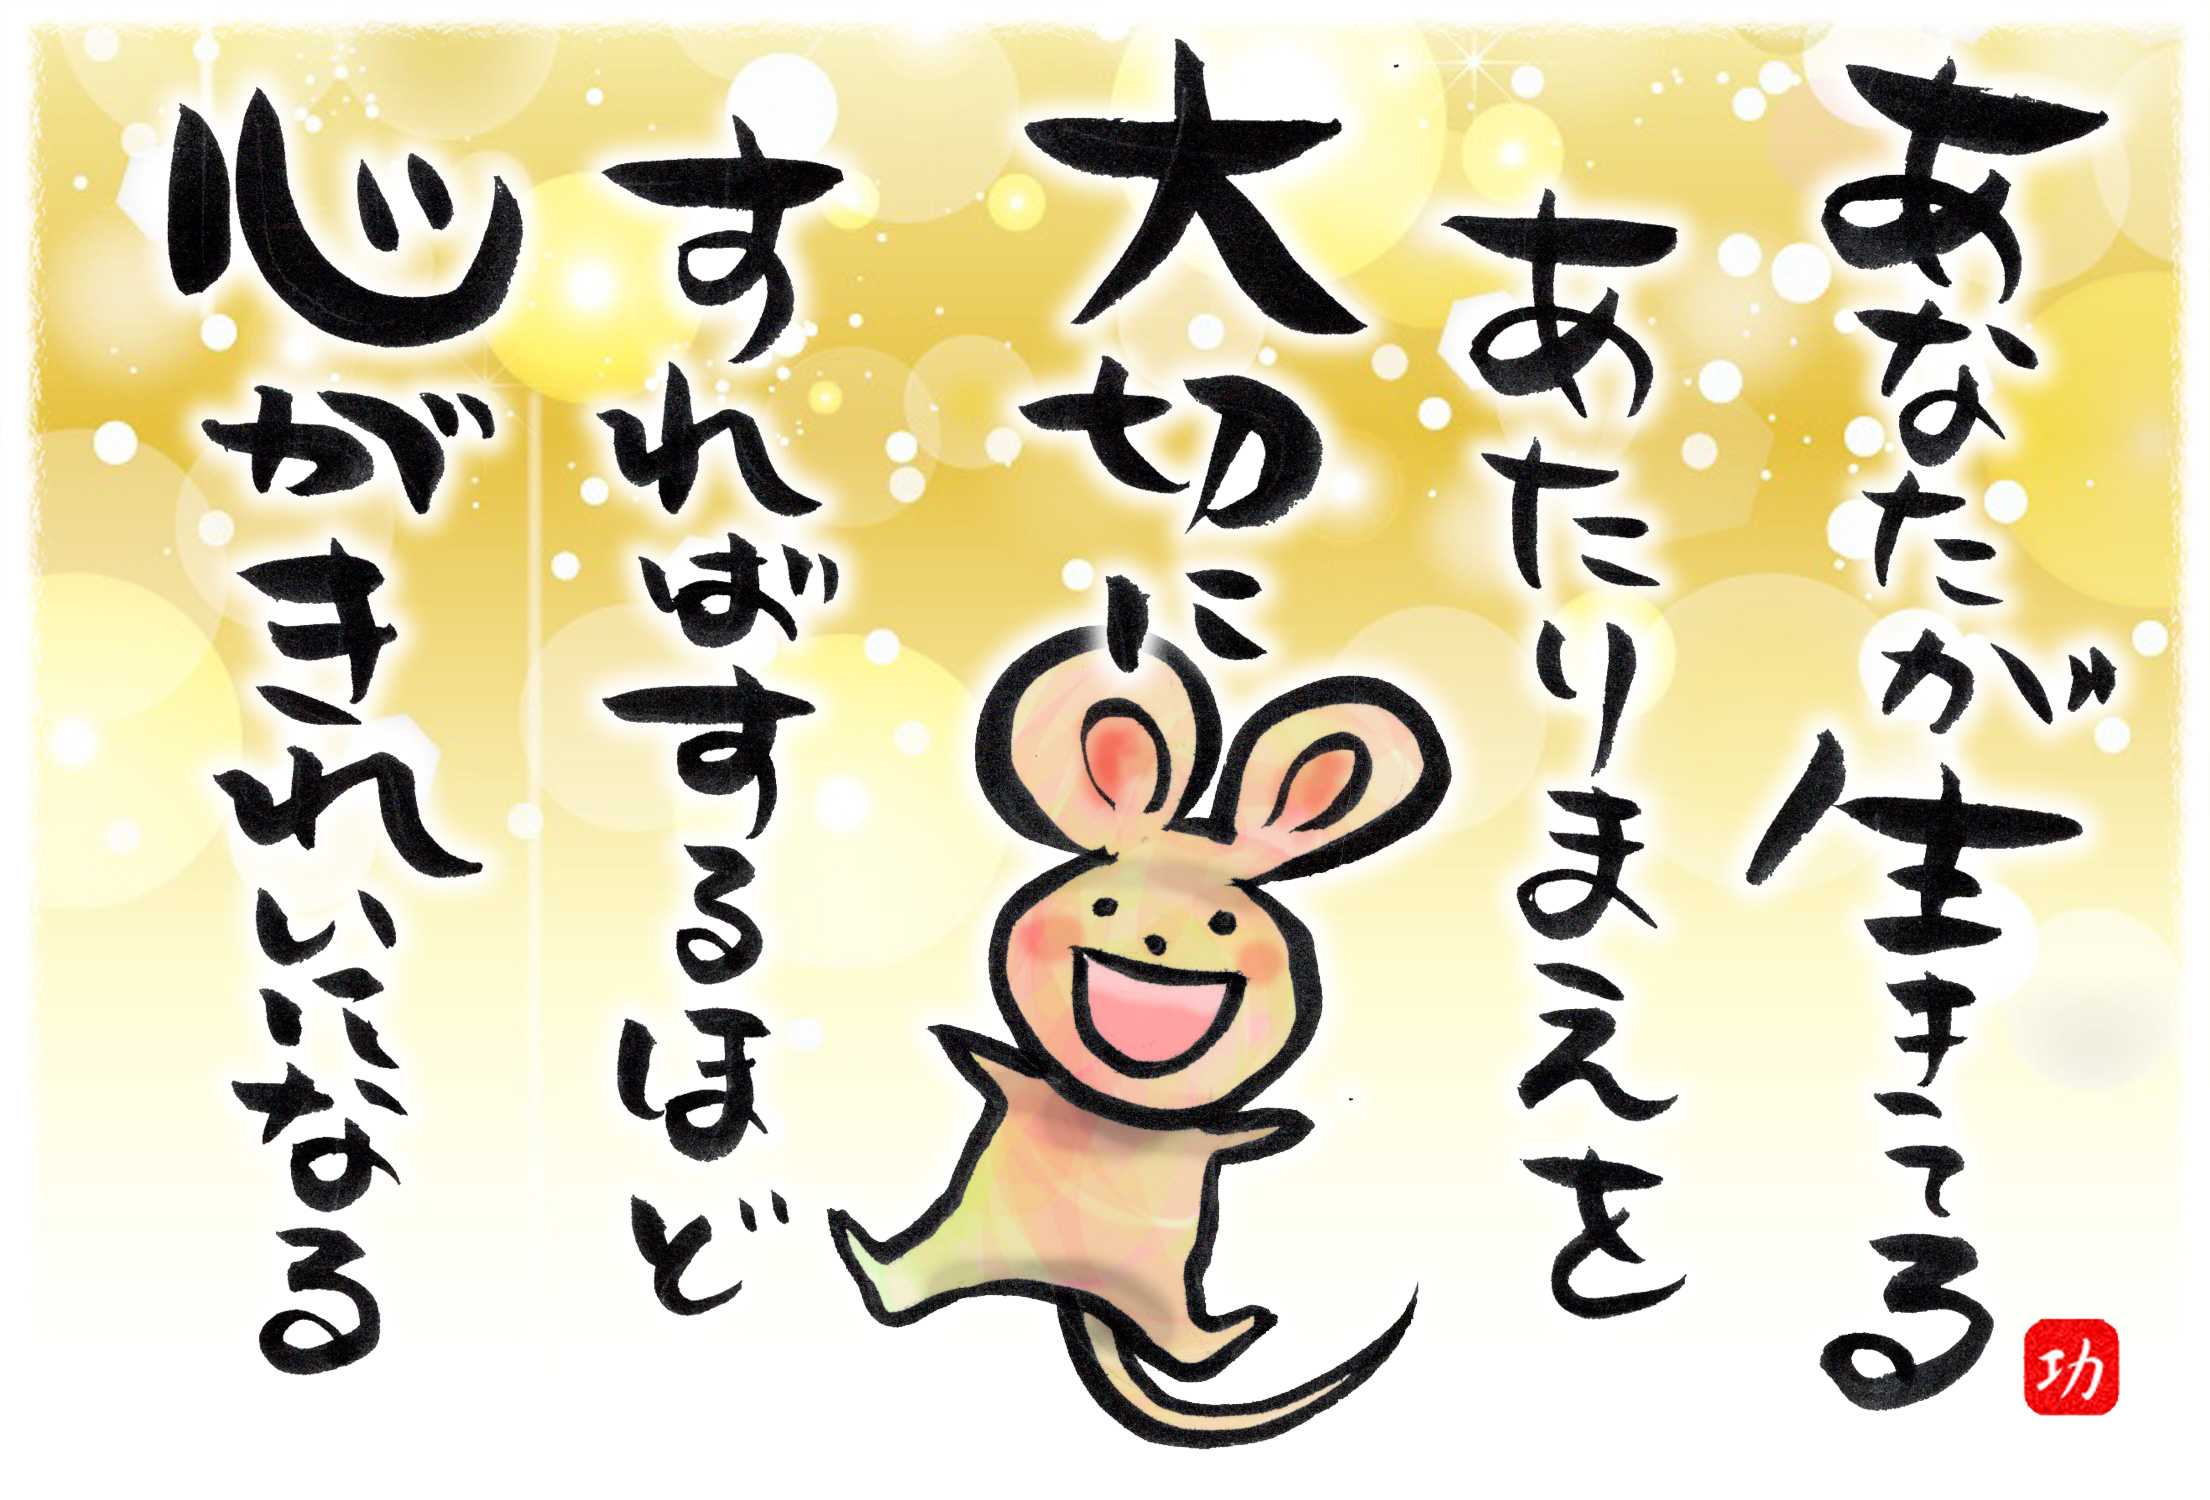 あなたが生きてる
あたりまえを
大切に
すればするほど
心がきれいになる
功